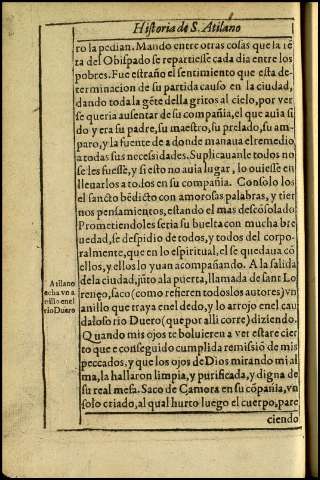 Historia de S. Atilano
ro la pedian. Mando entre otras cosas que la rẽ
ta del Obispado se repartiesse cada dia entre los
pobres. Fue estraño el sentimiento que esta de-
terminacion de su partida causo en la ciudad,
dando toda la gẽte della gritos al cielo, por ver
se queria ausentar de su compañia, el que auia si
do y era su padre, su maestro, su prelado, su am-
paro, y la fuente de a donde manaua el remedio
a todas sus necesidades. Suplicauanle todos no
se les fuesse, y si esto no auia lugar, lo ouiesse en
lleuarlos a todos en su compañia. Consolo los
el sancto bẽdicto con amorosas palabras, y tier
nos pensamientos, estando el mas descõsolado
Prometiendoles seria su buelta con mucha bre
uedad, se despidio de todos, y todos del corpo-
ralmente, que en lo espiritual, el se quedaua cõ
ellos, y ellos lo yuan acompañando. A la salida
de la ciudad, jũto ala puerta, llamada de sant Lo
renço, saco (como refieren todos los autores) vn
anillo que traya en el dedo, y lo arrojo en el cau
daloso rio Duero (que por alli corte) diziendo.
Quando mis ojos te boluieren a ver estare cier
to que e conseguido cumplida remissiõ de mis
peccados, y que los ojos de Dios mirando mi al
ma, la hallaron limpia, y purificada, y digna de
su real mesa. Saco de Çamora en su cõpañia, vn
solo criado, al qual hurto luego el cuerpo, pare
ciendo
Atilano
echa vn a
nillo en el
rio Duero